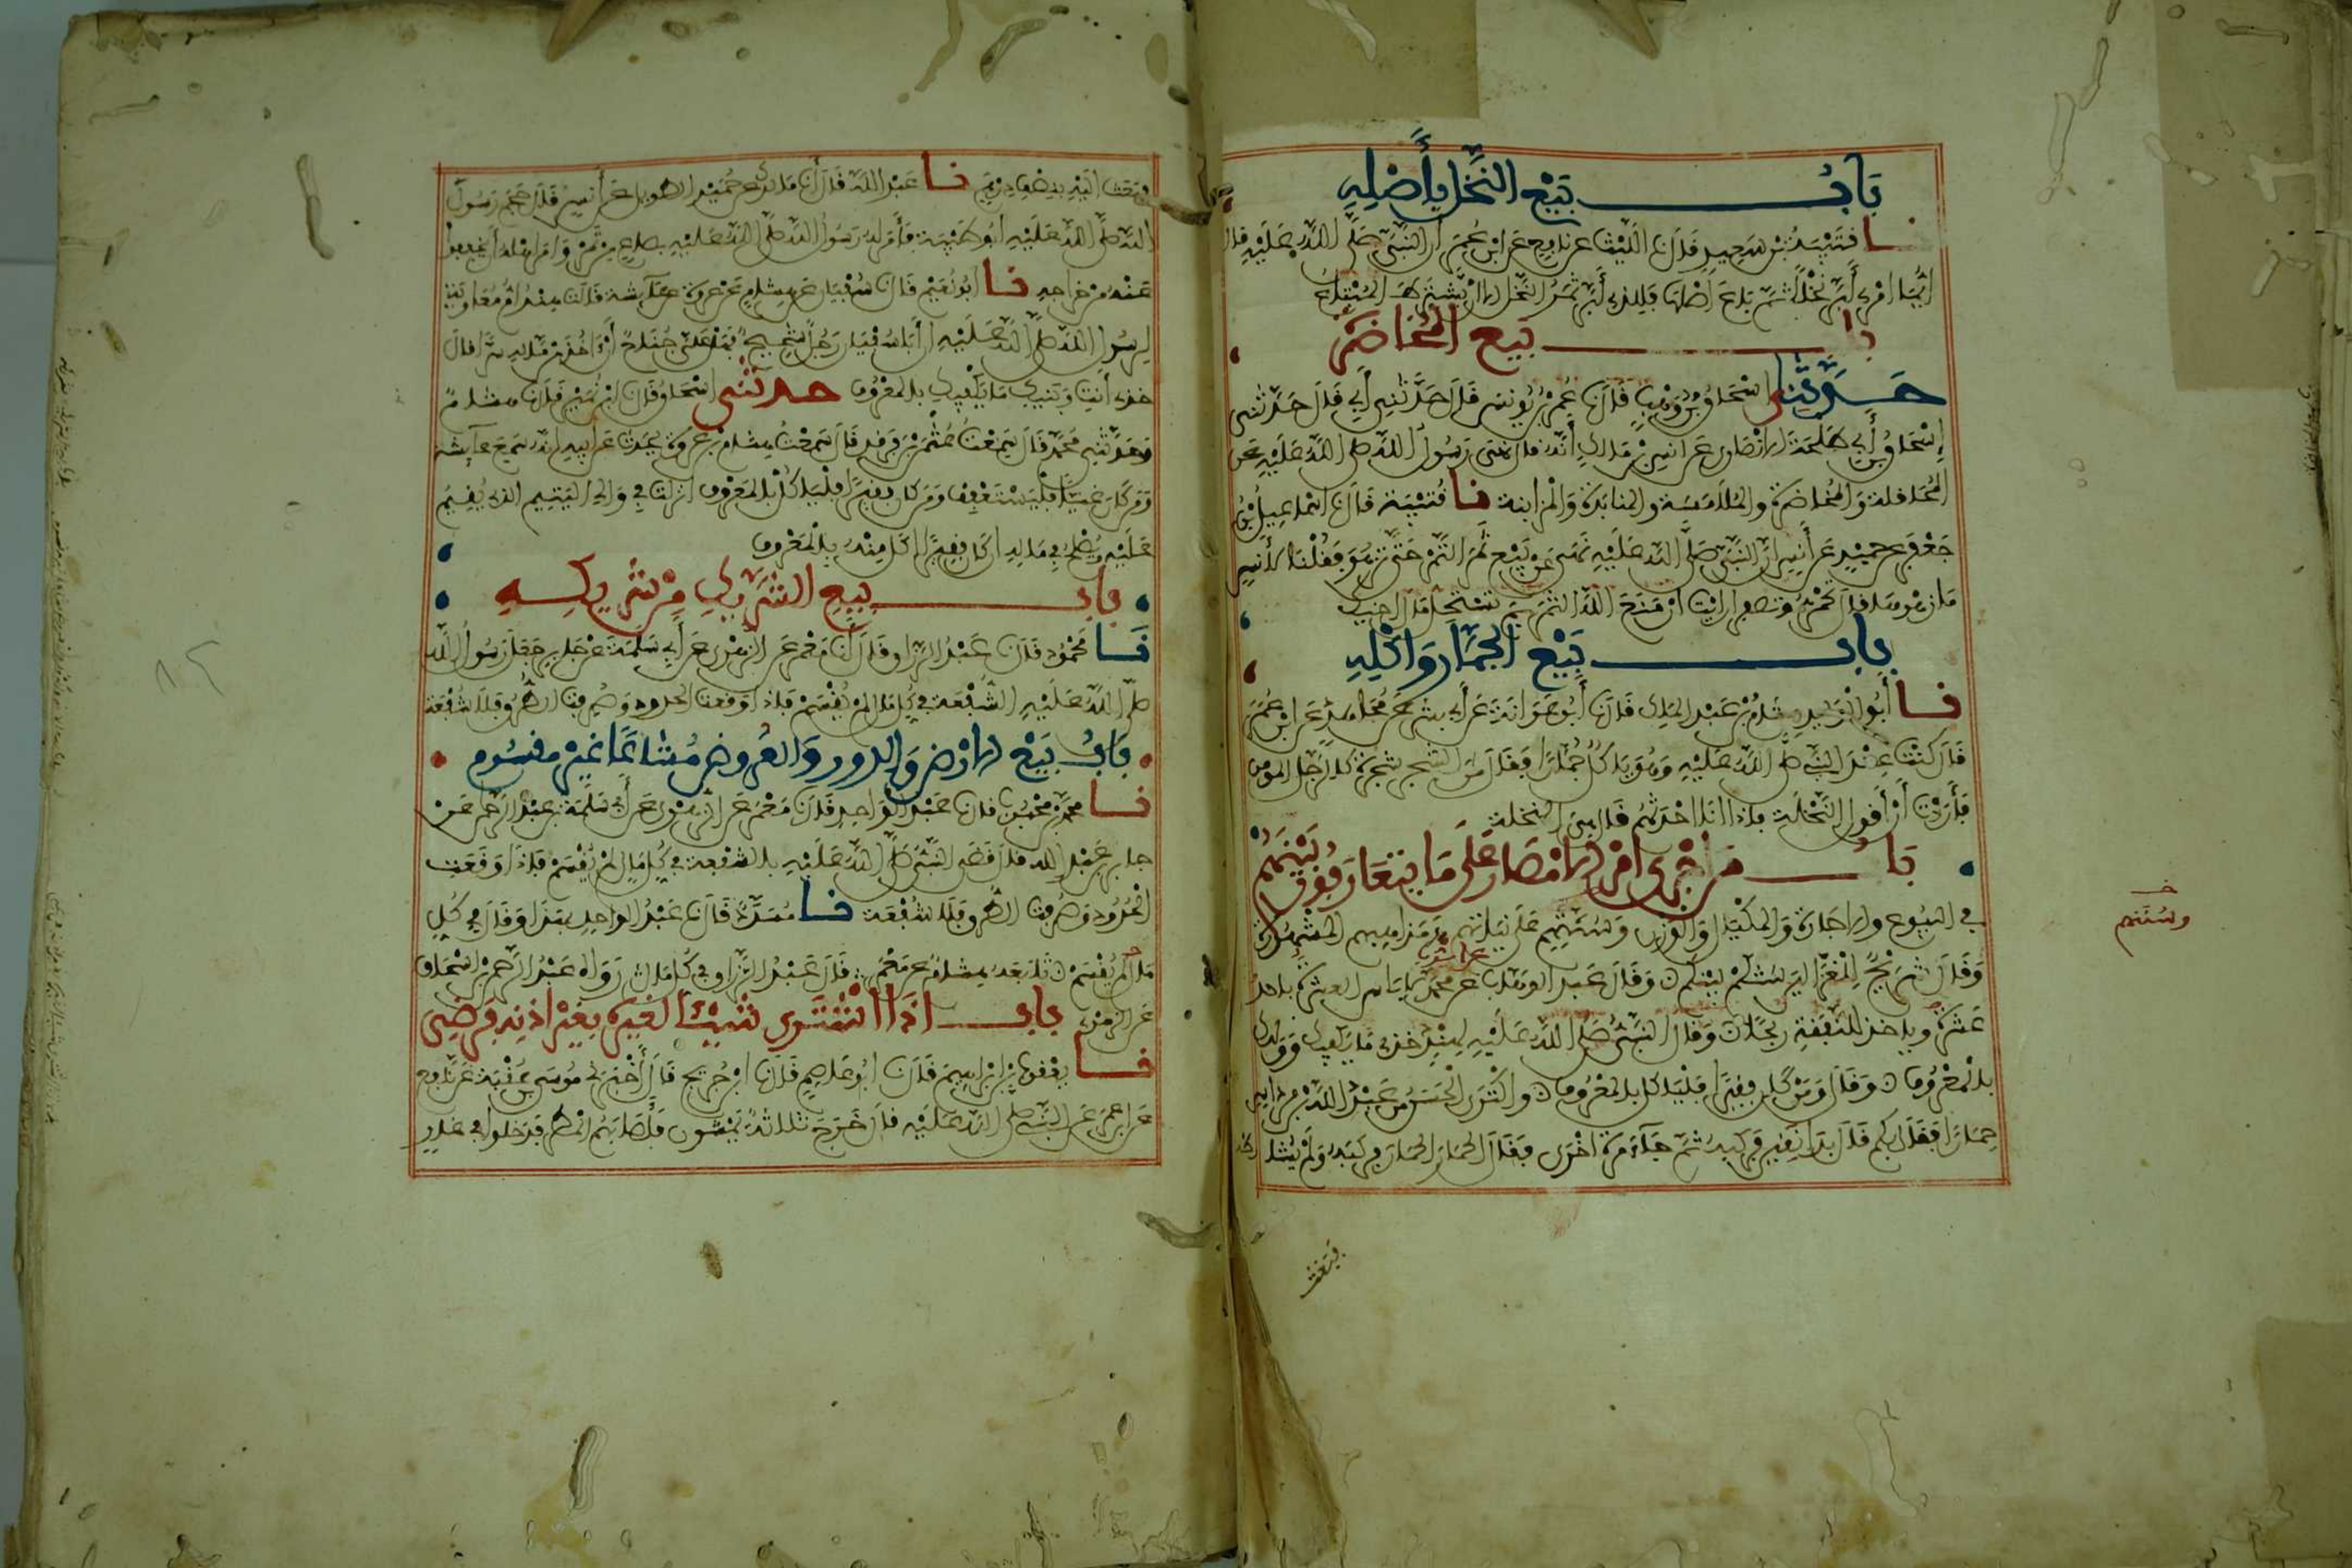 بَابُ بَيْعِ النَّخْلِ بِأَصْلِهِ
نا قُتَيْبَةُ بْنُ سَعِيدٍ قَالَ نا اللَّيْثُ عَنْ نَافِعٍ عَنِ ابْنِ عُمَرَ أَنَّ النَّبِيَّ صَلَّى اللَّهُ عَلَيْهِ قَالَ
أَيُّمَا امْرِئٍ أَبَّرَ نَخْلًا ثُمَّ بَاعَ أَصْلَهَا فَلِلَّذِي أَبَّرَ ثَمَرُ النَّخْلِ إِلَّا أَنْ يَشْتَرِطَ الْمُبْتَاعُ
باب بَيْعِ الْمُخَاضَرَةِ
حَدَّثَنِي إِسْحَاقُ بْنُ وَهْبٍ قَالَ نا عُمَرُ بْنُ يُونُسَ قَالَ حَدَّثَنِي أَبِي قَالَ حَدَّثَنِي
إِسْحَاقُ بْنُ أَبِي طَلْحَةَ الْأَنْصَارِي عَنْ أَنَسِ بْنِ مَالِكٍ أَنَّهُ قَالَ نَهَى رَسُولُ اللَّهِ صَلَّى اللَّهُ عَلَيْهِ عَنِ
الْمُحَاقَلَةِ وَالْمُخَاضَرَةِ وَالْمُلَامَسَةِ وَالْمُنَابَذَةِ وَالْمُزَابَنَةِ نا قُتَيْبَةُ قَالَ نا إِسْمَاعِيلُ بْنُ
جَعْفَرٍ عَنْ حُمَيْدٍ عَنْ أَنَسٍ أَنَّ النَّبِيَّ صَلَّى اللَّهُ عَلَيْهِ نَهَى عَنْ بَيْعِ ثَمَرِ التَّمْرِ حَتَّى تَزْهُوَ فَقُلْنَا لِأَنَسٍ
مَا زَهْوُهَا قَالَ تَحْمَرُّ وَتَصْفَرُّ أَرَأَيْتَ إِنْ مَنَعَ اللَّهُ الثَّمَرَةَ بِمَ تَسْتَحِلُّ مَالَ أَخِيكَ
بَابُ بَيْعِ الْجُمَّارِ وَأَكْلِهِ
نا أَبُو الْوَلِيدِ هِشَامُ بْنُ عَبْدِ الْمَلِكِ قَالَ نا أَبُو عَوَانَةَ عَنْ أَبِي بِشْرٍ عَنْ مُجَاهِدٍ عَنِ ابْنِ عُمَرَ
قَالَ كُنْتُ عِنْدَ النَّبِيِّ صَلَّى اللَّهُ عَلَيْهِ وَهُوَ يَأْكُلُ جُمَّارًا فَقَالَ مِنَ الشَّجَرِ شَجَرَةٌ كَالرَّجُلِ الْمُؤْمِنِ
فَأَرَدْتُ أَنْ أَقُولَ النَّخْلَةُ فَإِذَا أَنَا أَحْدَثُهُمْ قَالَ هِيَ النَّخْلَةُ
بَابُ مَنْ أَجْرَى أَمْرَ الْأَمْصَارِ عَلَى مَا يَتَعَارَفُونَ بَيْنَهُمْ
فِي الْبُيُوعِ وَالْإِجَارَةِ وَالْمِكْيَالِ وَالْوَزْنِ وَسُنَّتِهِمْ عَلَى نِيَّاتِهِمْ وَمَذَاهِبِهِمُ الْمَشْهُورَةِ
وسُنَنهم
وَقَالَ شُرَيْحٌ لِلْغَزَّالِينَ سُنَّتُكُمْ بَيْنَكُمْ وَقَالَ عَبْدُ الْوَهَّابِ عَنْ أيوب عَنْ مُحَمَّدٍ لَا بَأْسَ الْعَشَرَةُ بِأَحَدَ
عَشَرَ وَيَأْخُذُ لِلنَّفَقَةِ رِبْحًا وَقَالَ النَّبِيُّ صَلَّى اللَّهُ عَلَيْهِ لِهِنْدٍ خُذِي مَا يَكْفِيكِ وَوَلَدَكِ
بِالْمَعْرُوفِ وَقَالَ وَمَنْ كَانَ فَقِيرًا فَلْيَأْكُلْ بِالْمَعْرُوفِ وَاكْتَرَى الْحَسَنُ مِنْ عَبْدِ اللَّهِ بْنِ مِرْدَاسٍ
حِمَارًا فَقَالَ بِكَمْ قَالَ بِدَانِقَيْنِ فَرَكِبَهُ ثُمَّ جَاءَ مَرَّةً أُخْرَى فَقَالَ الْحِمَارَ الْحِمَارَ فَرَكِبَهُ وَلَمْ يُشَارِطْهُ
فبعث
فَبَعَثَ إِلَيْهِ بِنِصْفِ دِرْهَمٍ نا عَبْدُ اللَّهِ قَالَ أَنَا مَالِكٌ عَنْ حُمَيْدٍ الطَّوِيلِ عَنْ أَنَسٍ قَالَ حَجَمَ رَسُولَ
اللَّهِ صَلَّى اللَّهُ عَلَيْهِ أَبُو طَيْبَةَ فَأَمَرَ لَهُ رَسُولُ اللَّهِ صَلَّى اللَّهُ عَلَيْهِ بِصَاعٍ مِنْ تَمْرٍ وَأَمَرَ أَهْلَهُ أَنْ يُخَفِّفُوا
عَنْهُ مِنْ خَرَاجِهِ نا أَبُو نُعَيْمٍ قَالَ نا سُفْيَانُ عَنْ هِشَامٍ عَنْ عُرْوَةَ عَنْ عَائِشَةَ قَالَتْ هِنْدُ أُمُّ مُعَاوِيَةَ
لِرَسُولِ اللَّهِ صَلَّى اللَّهُ عَلَيْهِ إِنَّ أَبَا سُفْيَانَ رَجُلٌ شَحِيحٌ فَهَلْ عَلَيَّ جُنَاحٌ أَنْ آخُذَ مِنْ مَالِهِ سِرًّا قَالَ
خُذِي أَنْتِ وَبَنِيكِ مَا يَكْفِيكِ بِالْمَعْرُوفِ حدثني إِسْحَاقُ قَالَ نا ابْنُ نُمَيْرٍ قَالَ نا هِشَامٌ
وَحَدَّثَنِي مُحَمَّدٌ قَالَ سَمِعْتُ عُثْمَانَ بْنَ فَرْقَدٍ قَالَ سَمِعْتُ هِشَامَ بْنَ عُرْوَةَ يُحَدِّثُ عَنْ أَبِيهِ أَنَّهُ سَمِعَ عَائِشَةَ
وَمَنْ كَانَ غَنِيًّا فَلْيَسْتَعْفِفْ وَمَنْ كَانَ فَقِيرًا فَلْيَأْكُلْ بِالْمَعْرُوفِ أُنْزِلَتْ فِي وَالِي الْيَتِيمِ الَّذِي يُقِيمُ
عَلَيْهِ وَيُصْلِحُ فِي مَالِهِ إِنْ كَانَ فَقِيرًا أَكَلَ مِنْهُ بِالْمَعْرُوفِ
بَابُ بَيْعِ الشَّرِيكِ مِنْ شَرِيكِهِ
نا مَحْمُودٌ قَالَ نا عَبْدُ الرَّزَّاقِ قَالَ أَنَا مَعْمَرٌ عَنِ الزُّهْرِيِّ عَنْ أَبِي سَلَمَةَ عَنْ جَابِرٍ جَعَلَ رَسُولُ اللَّهِ
صَلَّى اللَّهُ عَلَيْهِ الشُّفْعَةَ فِي كُلِّ مَالٍ لَمْ يُقْسَمْ فَإِذَا وَقَعَتِ الْحُدُودُ وَصُرِفَتِ الطُّرُقُ فَلَا شُفْعَةَ
بَابُ بَيْعِ الْأَرْضِ وَالدُّورِ وَالْعُرُوضِ مُشَاعًا غَيْرَ مَقْسُومٍ
نا مُحَمَّدُ بْنُ مَحْبُوبٍ قَالَ نا عَبْدُ الْوَاحِدِ قَالَ نا مَعْمَرٌ عَنِ الزُّهْرِيِّ عَنْ أَبِي سَلَمَةَ بْنِ عَبْدِ الرَّحْمَنِ عَنْ
جَابِرِ بْنِ عَبْدِ اللَّهِ قَالَ قَضَى النَّبِيُّ صَلَّى اللَّهُ عَلَيْهِ بِالشُّفْعَةِ فِي كُلِّ مَالٍ لَمْ يُقْسَمْ فَإِذَا وَقَعَتِ
الْحُدُودُ وَصُرِفَتِ الطُّرُقُ فَلَا شُفْعَةَ نا مُسَدَّدٌ قَالَ نا عَبْدُ الْوَاحِدِ بِهَذَا وَقَالَ فِي كُلِّ
مَا لَمْ يُقْسَمْ تَابَعَهُ هِشَامٌ عَنْ مَعْمَرٍ قَالَ عَبْدُ الرَّزَّاقِ فِي كُلِّ مَالٍ رَوَاهُ عَبْدُ الرَّحْمَنِ بْنُ إِسْحَاقَ
عَنِ الزُّهْرِيِّ بَابُ إِذَا اشْتَرَى شَيْئًا لِغَيْرِهِ بِغَيْرِ إِذْنِهِ فَرَضِيَ
نا يَعْقُوبُ بْنُ إِبْرَاهِيمَ قَالَ نا أَبُو عَاصِمٍ قَالَ نا ابْنُ جُرَيْجٍ قَالَ أَخْبَرَنِي مُوسَى بْنُ عُقْبَةَ عَنْ نَافِعٍ
عَنِ ابْنِ عُمَرَ عَنِ النَّبِيِّ صَلَّى اللَّهُ عَلَيْهِ قَالَ خَرَجَ ثَلَاثَةٌ يَمْشُونَ فَأَصَابَهُمُ الْمَطَرُ فَدَخَلُوا فِي غَارٍ